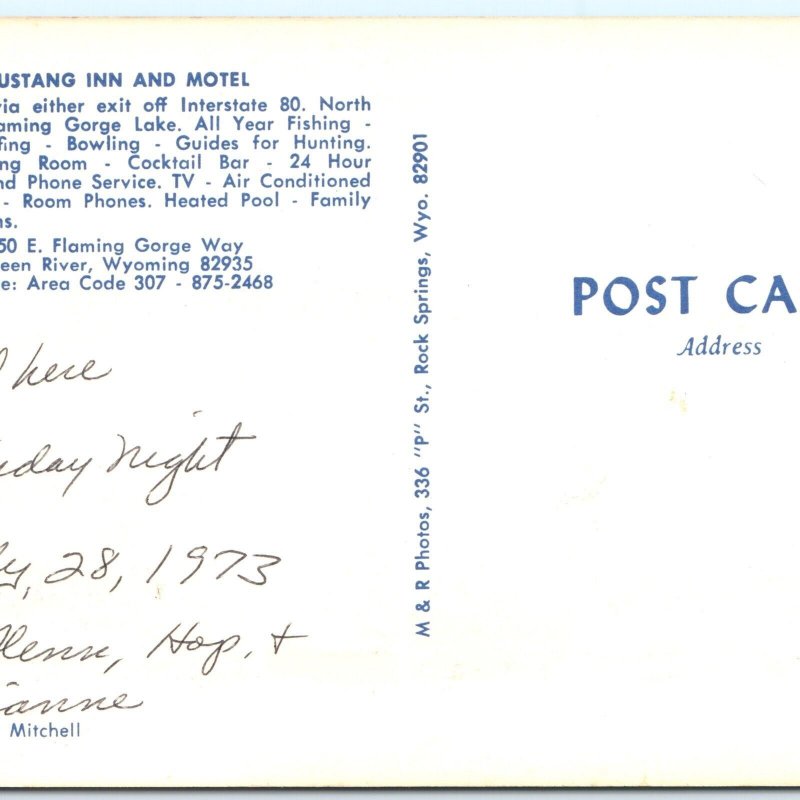 USTANG INN AND MOTEL
via either exit off Interstate 80. North
aming Gorge Lake. All Year Fishing -
fing - Bowling - Guides for Hunting.
ng Room - Cocktail Bar - 24 Hour
nd Phone Service. TV - Air Conditioned
- Room Phones. Heated Pool - Family
ns.
50 E. Flaming Gorge Way
een River, Wyoming 82935
e: Area Code 307 - 875-2468
here
day night
ly, 28, 1973
lenn, Hop, +
ianne
Mitchell
M & R Photos, 336 "P" St., Rock Springs, Wyo. 82901
POST CA
Address